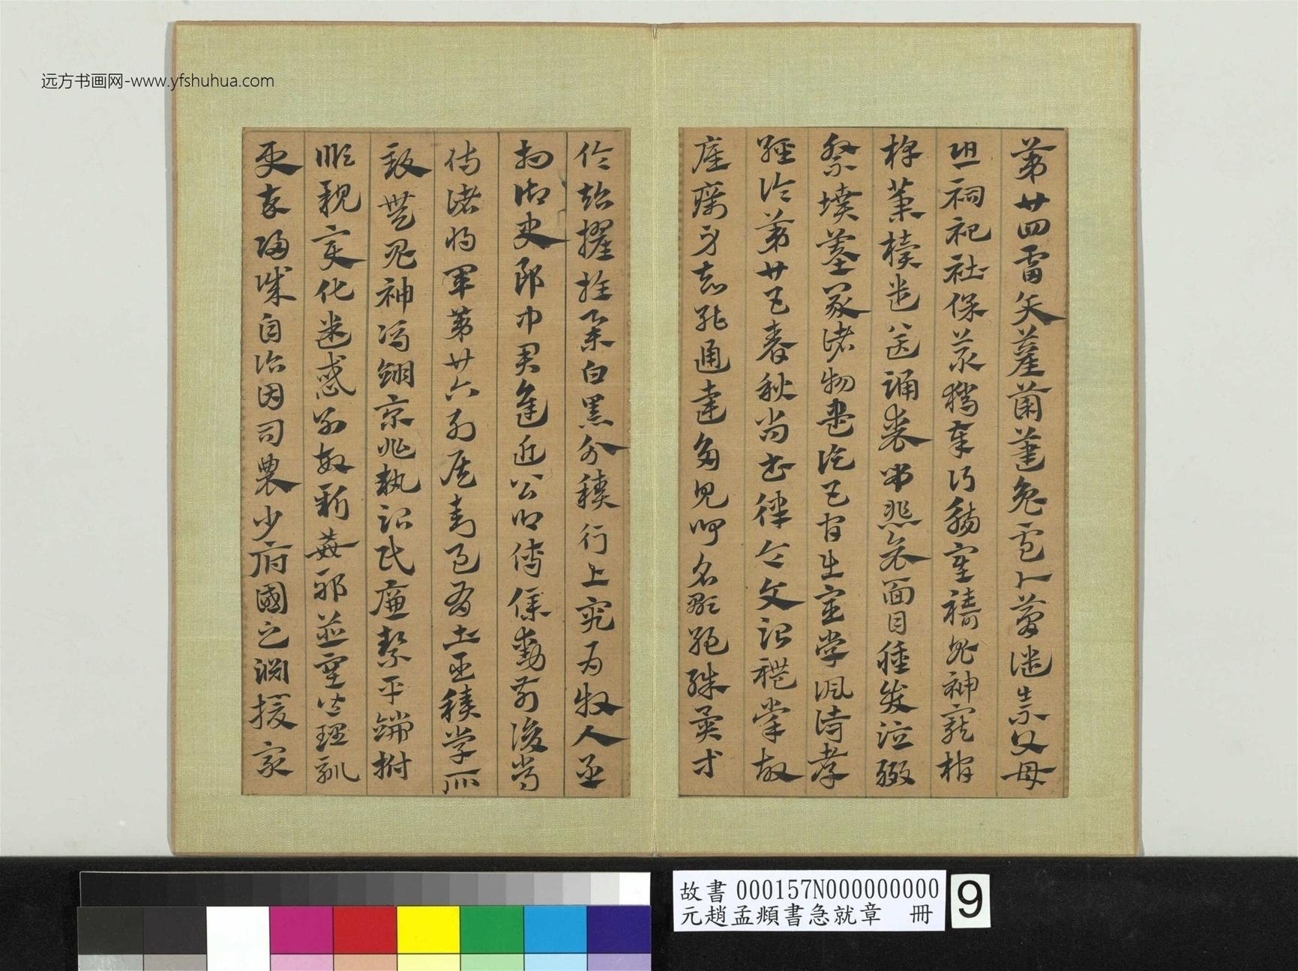 远方书画网-www.yfshuhua.com
第廿四雷矢雚菌藎兔盧卜夢譴祟父母
恐祠祀社保叢獵奉行觴塞禱鬼神寵棺
椁槥櫝遣送踊喪弔悲哀面目種哭泣醊
祭墳墓冢諸物盡訖五官出宦學諷詩孝
經論第廿五春秋尚書律令文治禮掌故
底厲身知能通達多見聞名顯絕殊異等
倫超擢推舉白黑分積行上究為牧人丞
相御史郎中君進近公卿傅僕勳前後常
侍諸將軍第廿六列侯封邑有土臣積學所
致無鬼神馮翊京兆執治民廉絜平端拊
順親變化迷惑別故新姦邪並塞皆理馴
更卒歸誠自詣因司農少府國之淵援眾
故書 000157N000000000
元趙孟頫書急就章 冊
9